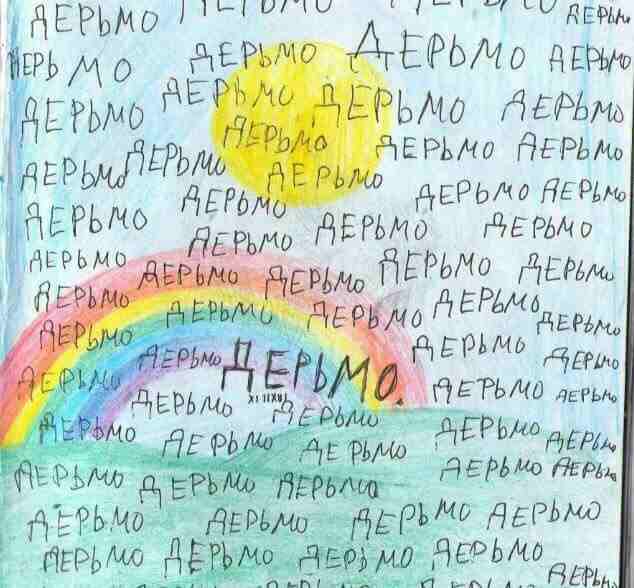 ДЕРЬМО ДЕРЬМО ДЕРЬМО ДЕРЬМО
ДЕРЬМО ДЕРЬМО ДЕРЬМО ДЕРЬМО
ДЕРЬМО ДЕРЬМО ДЕРЬМО ДЕРЬМО
ДЕРЬМО ДЕРЬМО ДЕРЬМО
ДЕРЬМО ДЕРЬМО ДЕРЬМО ДЕРЬМО ДЕРЬМО
ДЕРЬМО ДЕРЬМО ДЕРЬМО ДЕРЬМО
ДЕРЬМО ДЕРЬМО ДЕРЬМО ДЕРЬМО
ДЕРЬМО ДЕРЬМО ДЕРЬМО ДЕРЬМО
ДЕРЬМО ДЕРЬМО ДЕРЬМО ДЕРЬМО
ДЕРЬМО ДЕРЬМО ДЕРЬМО. ДЕРЬМО ДЕРЬМО
ДЕРЬМО ДЕРЬМО ДЕРЬМО ДЕРЬМО
ДЕРЬМО ДЕРЬМО ДЕРЬМО ДЕРЬМО ДЕРЬМО
ДЕРЬМО ДЕРЬМО ДЕРЬМО ДЕРЬМО ДЕРЬМО
ДЕРЬМО ДЕРЬМО ДЕРЬМО ДЕРЬМО
ДЕРЬМО ДЕРЬМО ДЕРЬМО ДЕРЬМО ДЕРЬМО